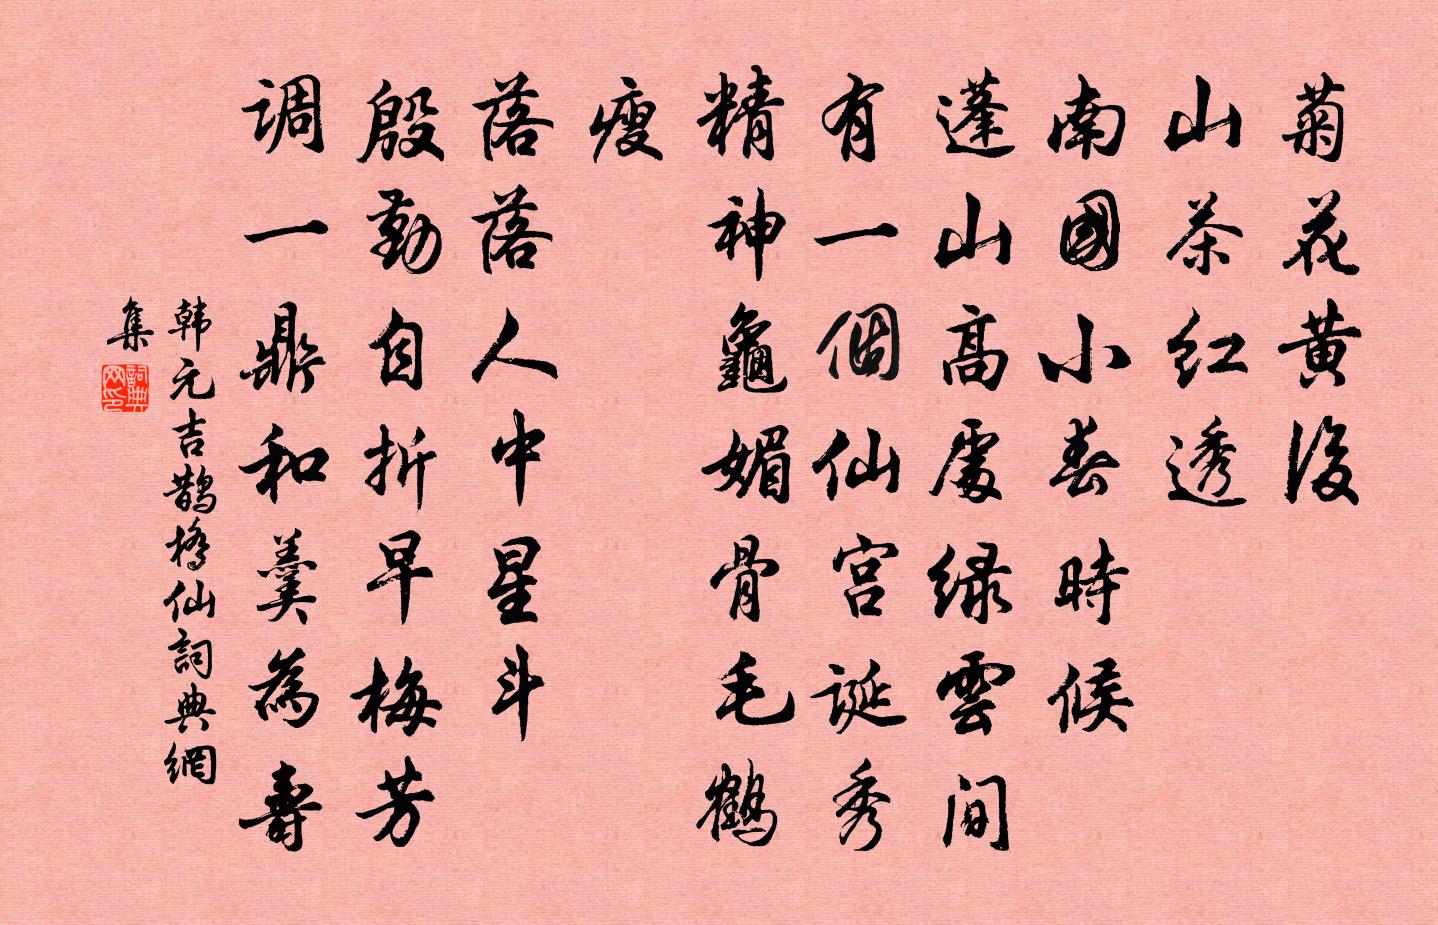 菊花黄後
山茶红透
南國小春時候
蓬山高處绿雲间
有一個仙宫诞秀
精神龜媚骨毛鹤
瘦
落落人中星斗
殷勤自折早梅芳
调一鼎和羹為壽
韩元吉鹊橋仙詞典網
集
詞典网印